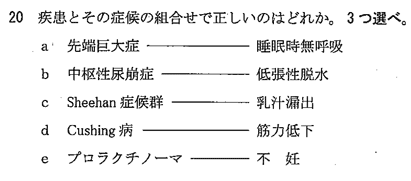 20 疾患とその症候の組合せで正しいのはどれか。3つ選べ。
a 先端巨大症 ――― 睡眠時無呼吸
b 中枢性尿崩症 ――― 低張性脱水
c Sheehan 症候群 ――― 乳汁漏出
d Cushing 病 ――― 筋力低下
e プロラクチノーマ ――― 不 妊